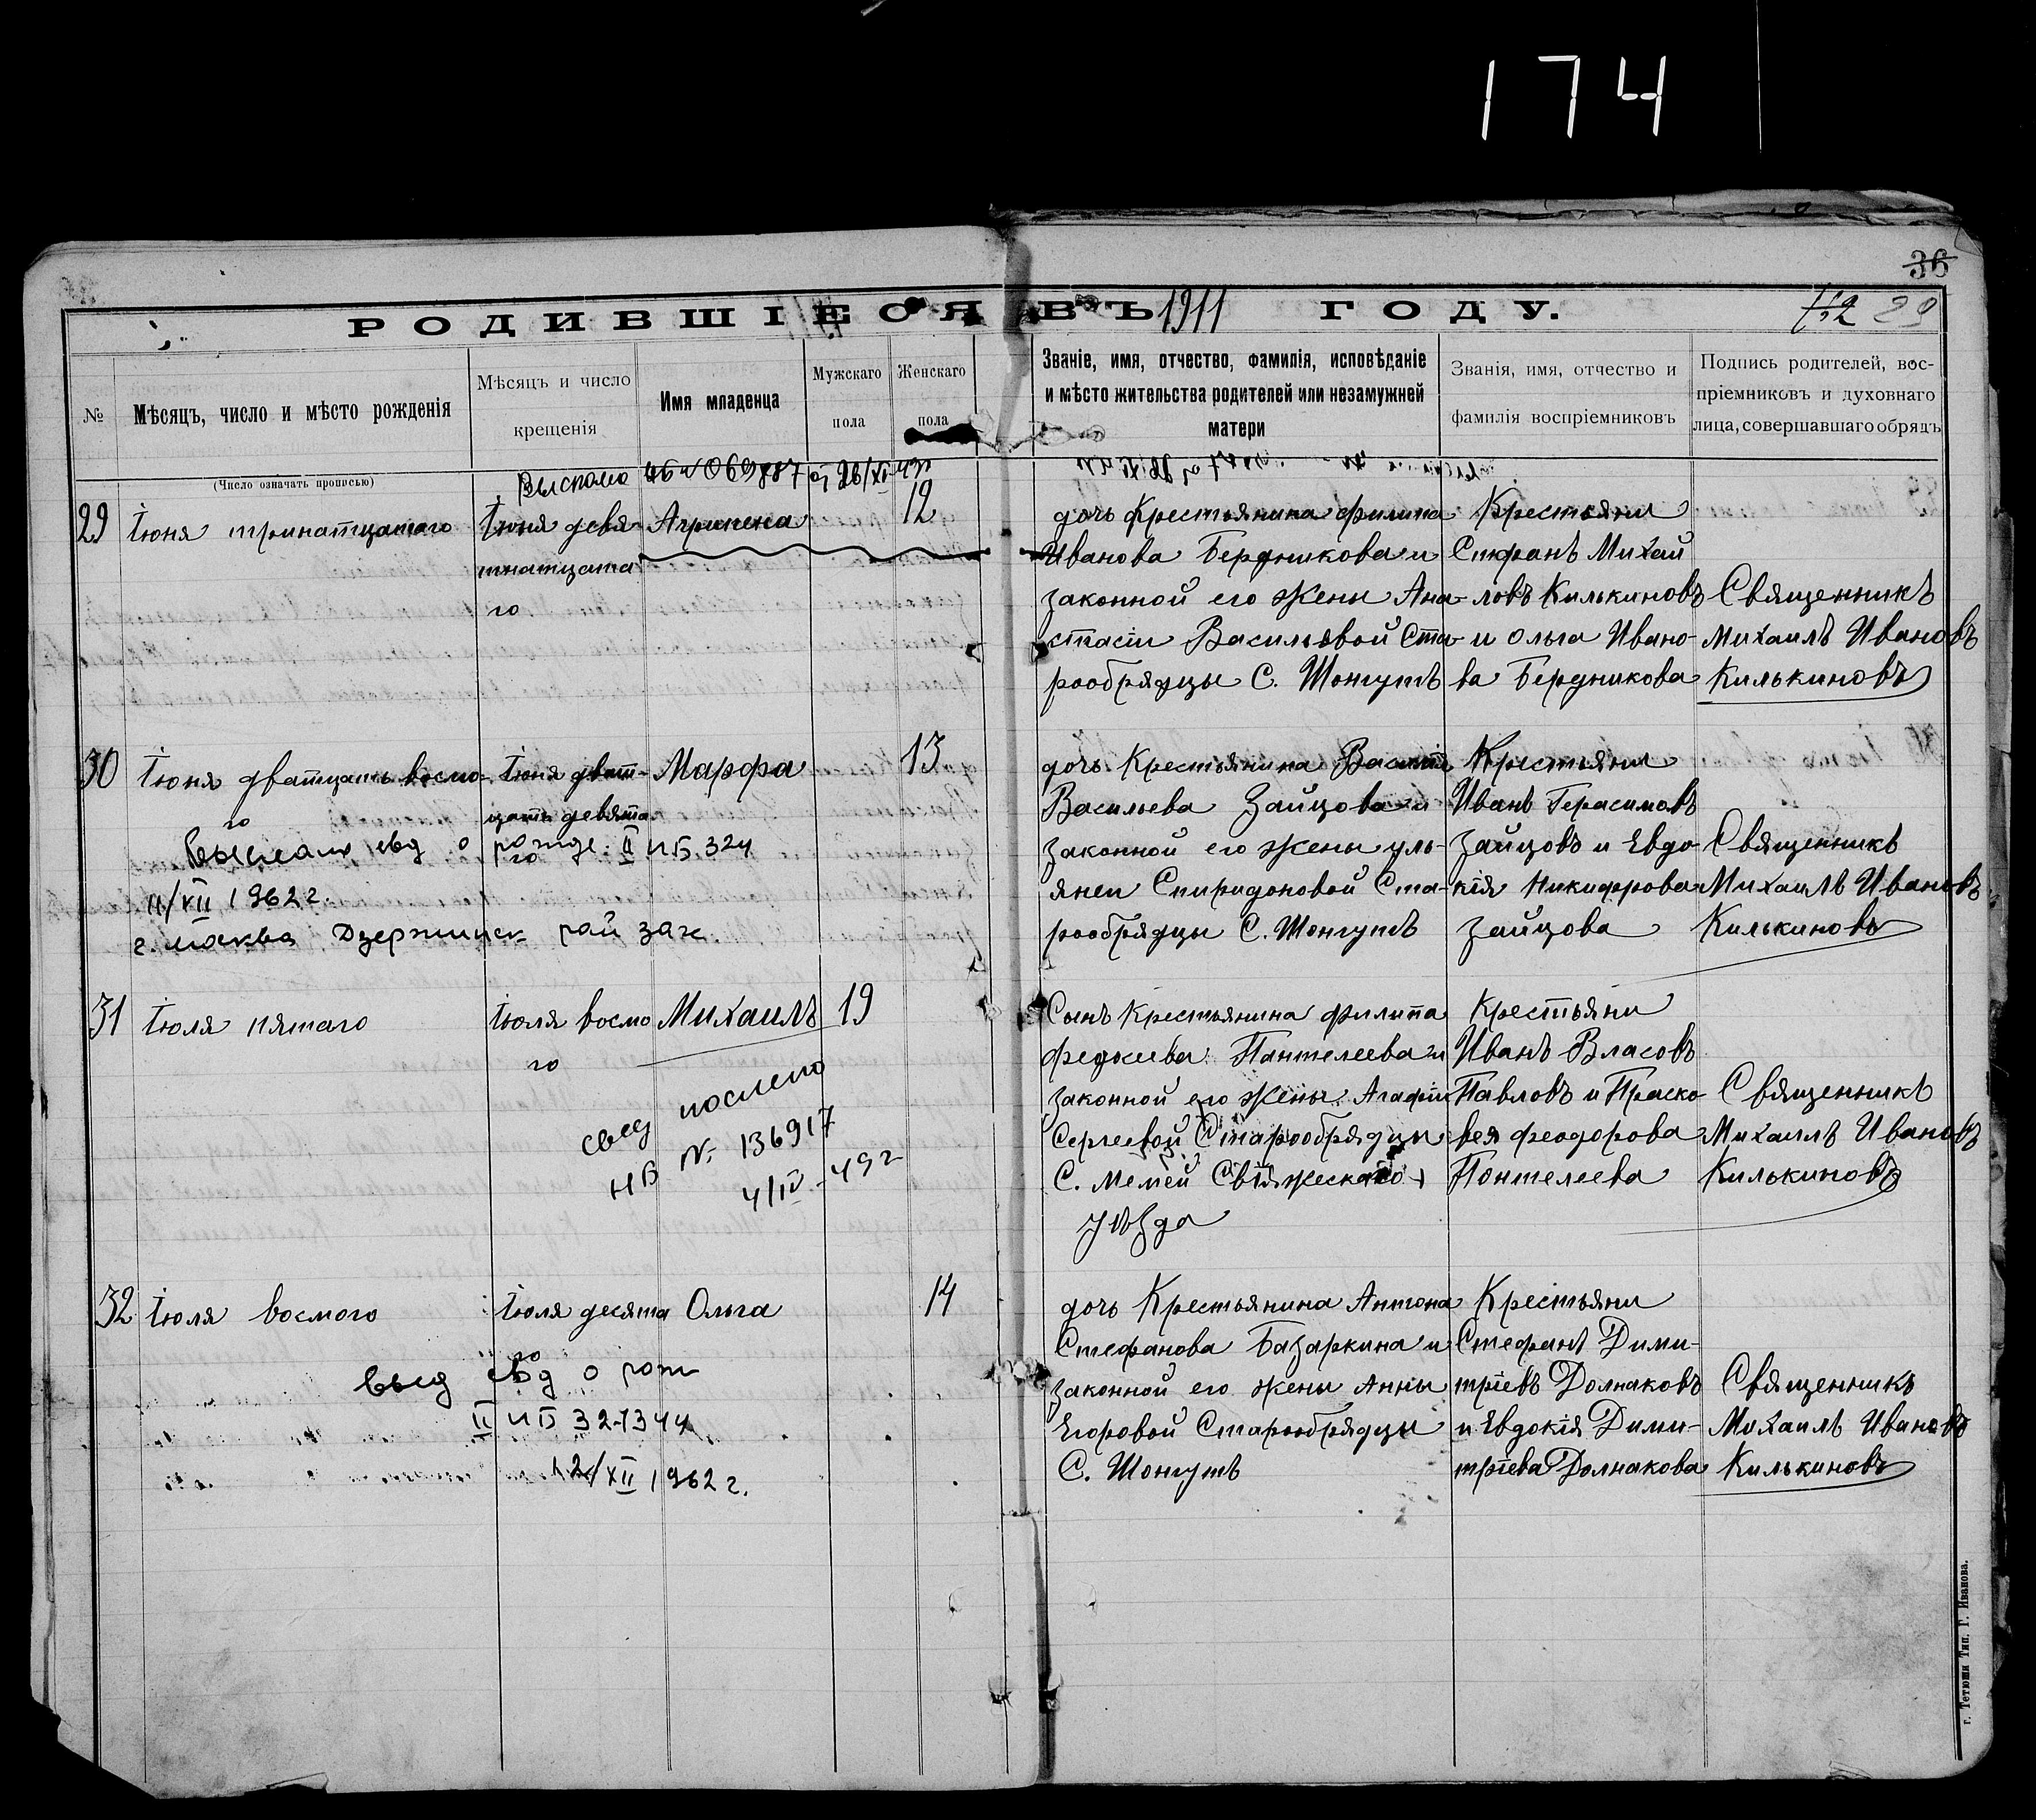 174
36
РОДИВШІЕСЯ ВЪ 1911 ГОДУ.
29
№
Мѣсяцъ, число и мѣсто рожденія
(Число означать прописью)
Мѣсяцъ и число
крещенія
Имя младенца
Мужскаго
пола
Женскаго
пола
Званіе, имя, отчество, фамилія, исповѣданіе
и мѣсто жительства родителей или незамужней
матери
Званія, имя, отчество и
фамилія воспріемниковъ
Подпись родителей, вос-
пріемниковъ и духовнаго
лица, совершавшаго обрядъ
29
Іюня тринатцатаго
Іюня девя-
тнатцата
го
Агрипена
12
дочь Крестьянина Филипа
Иванова Бердникова и
законной его жены Ана-
стасіи Васильевой Ста-
рообрядцы С. Шонгутъ
Крестьяни
Стефанъ Михай
ловъ Килькиновъ
и Ольга Ивано-
ва Бердникова
Священникъ
Михаилъ Ивановъ
Килькиновъ
30
Іюня дватцать восмо-
го
Іюня дват-
цать девята
го
Марфа
13
дочь Крестьянина Василія
Васильева Зайцова и
законной его жены Уль-
янеи Спиридоновой Ста-
рообрядцы С. Шонгутъ
Крестьяни
Иванъ Герасимовъ
Зайцовъ и Евдо-
кія Никифорова
Зайцова
Священникъ
Михаилъ Ивановъ
Килькиновъ
свд о рожде. II ИБ 324
11/XII 1962 г.
г. Москва Дзержинск рай заг.
31
Іюля пятаго
Іюля восмо
го
Михаилъ
19
свед послено
НВ № 136917
4/IV-49 г
Сынъ Крестьянина Филипа
Пантелеева и
законной его жены Агафіи
Сергеевой Старообрядцы
С. Мемей Свіяжескаго
уѣзда
Крестьяни
Иванъ Власовъ
Павловъ и Праско-
вея Феодорова
Понтелеева
Священникъ
Михаилъ Ивановъ
Килькиновъ
32
Іюля восмого
Іюля десята
го
Ольга
14
дочь Крестьянина Антона
Стефанова Базаркина и
законной его жены Анны
Егоровой Старообрядцы
С. Шонгутъ
Крестьяни
Стефанъ Дими-
тріевъ Долнаковъ
и Евдокія Дими-
тріева Долнакова
Священникъ
Михаилъ Ивановъ
Килькиновъ
выд свд о рож
II ИБ 321344
12/XII 1962 г.
г. Тетюши Тип. Г. Иванова.